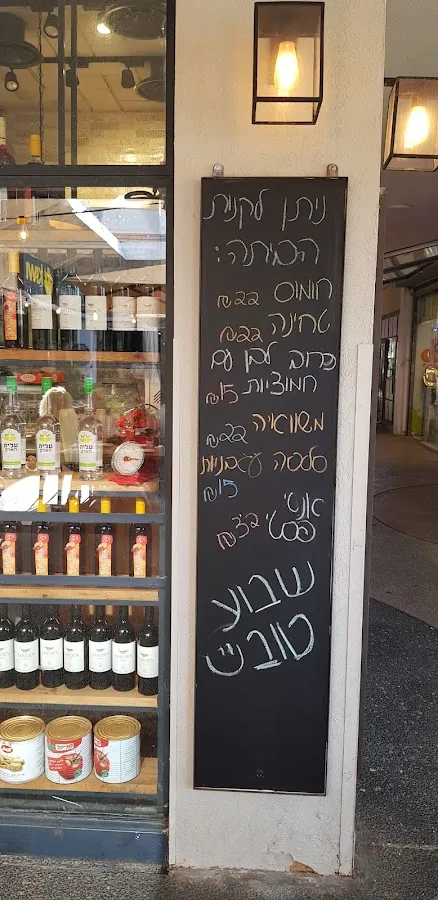 ניתן לקנות
הביתה:
חומוס 22₪
טחינה 22₪
כרוב לבן עם
חמוציות 15₪
משוואיה 22₪
סלסה עגבניות
15₪
אנטי
פסטי 23₪
שבוע
טוב
עלית
עלית
עלית